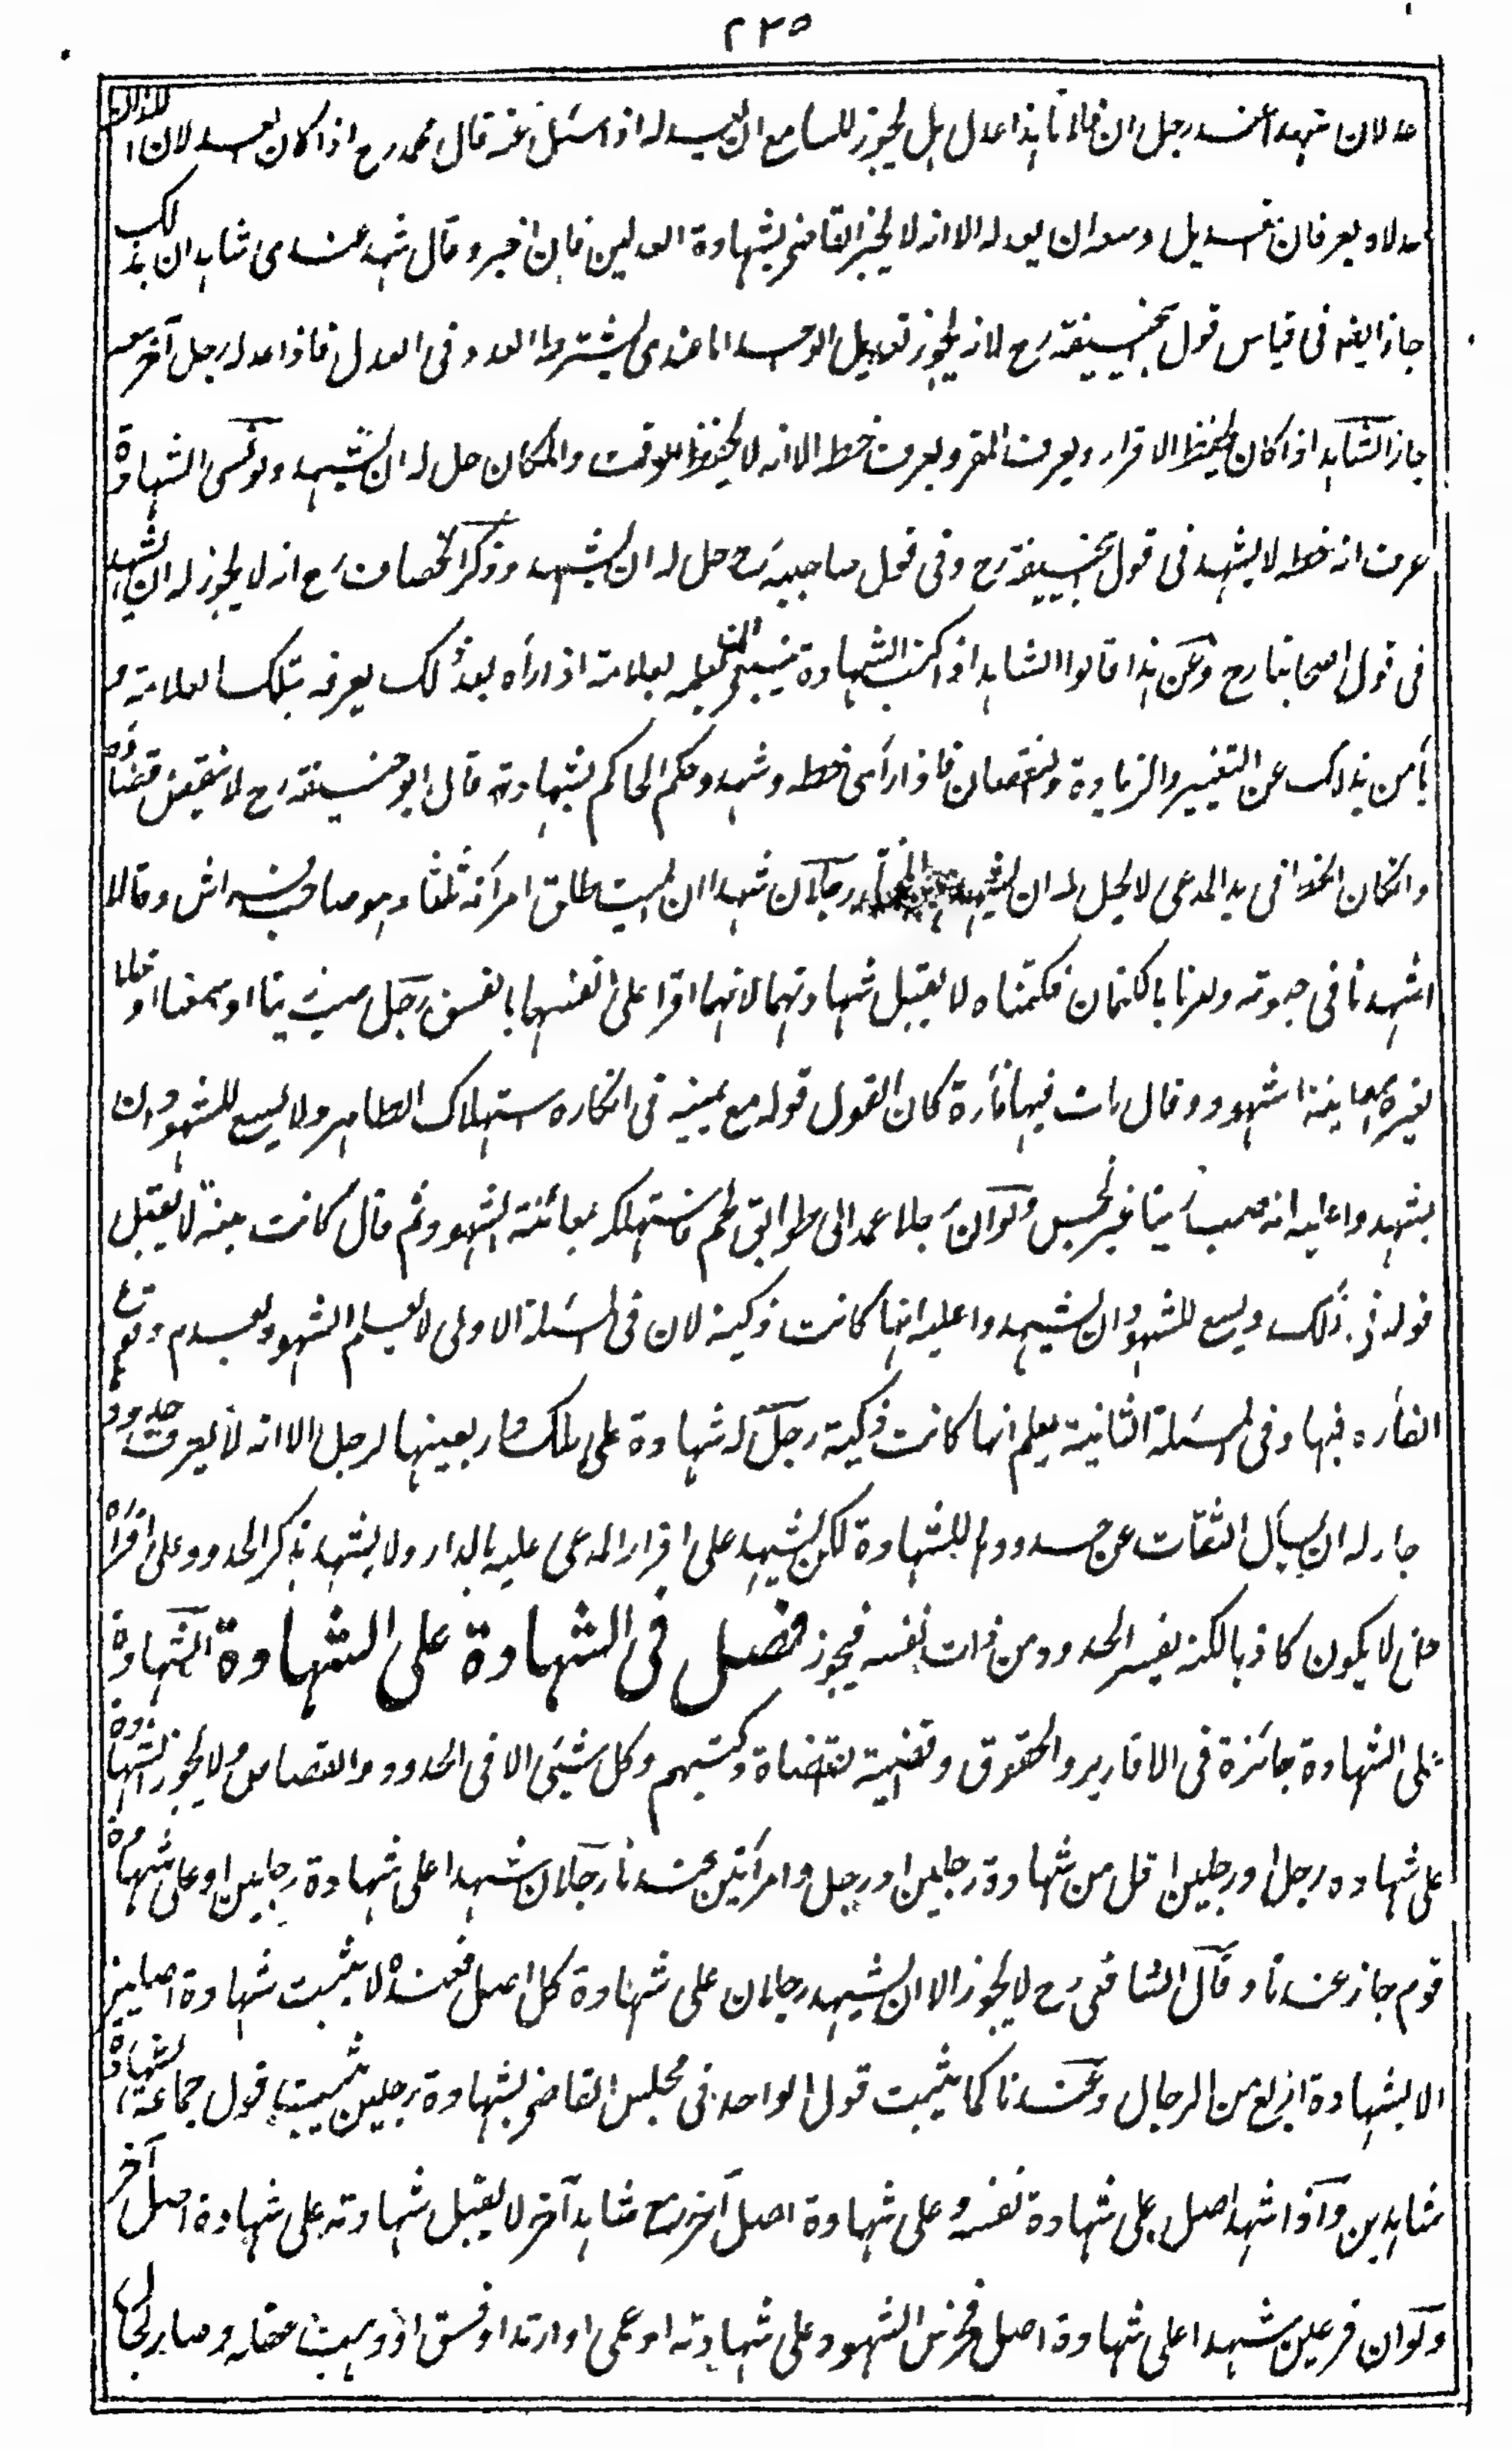 ٢٣٥
عدلان شهدا عند رجل ان فلانا هذا عدل هل يجوز للسامع ان يعدله اذا سئل عنه قال محمد رح اذا كان يعد لان
عدلا ويعرفان تعديل وسعه ان يعدله الا انه لا يخبر القاضى بشهادة العدلين فان اخبر وقال شهد عندى شاهدان بذلك
جاز ايضا فى قياس قول ابيحنيفة رح لانه يجوز تعديل الواحد اما عندى يشترط العدد فى العدل فاذا عدله رجل آخر معه
جاز الشاهد اذا كان يحفظ الاقرار ويعرف المقر ويعرف خطه الا انه لا يحفظ الوقت والمكان حل له ان يشهد ولو نسى الشهادة
عرف انه خطه لا يشهد فى قول ابيحنيفة رح وفى قول صاحبيه رح حل له ان يشهد وذكر الخصاف رح انه لا يجوز له ان يشهد
فى قول اصحابنا رح وعن هذا قالوا الشاهد اذا كتب الشهادة ينبغى ان يعلمه بعلامة اذا رأه بعد ذلك يعرفه بتلك العلامة
يأمن بذلك عن التغيير والزيادة والنقصان فاذا رأى خطه وشهد وحكم الحاكم بشهادته قال ابو حنيفة رح لا ينقض قضاؤه
وان كان الخط فى يد المدعى لا يحل له ان يشهد رجلان شهدا ان الميت طلق امرأته ثلثا وهو صاحب فراش وقالا
اشهدنا فى حيوته وامرنا بالكتمان فكتمناه لا يقبل شهادتهما لانهما اقرا على انفسهما بالفسق رجل صب زيتا او سمنا او خلا
لغيره بمعاينة الشهود وقال ماتت فيها فأرة كان القول قوله مع يمينه فى انكاره استهلاك الطاهر ولا يسع للشهود ان
يشهدوا عليه انه صب زيتا غير نجس ولو ان رجلا عمد الى طوابق لحم فاستهلكه بمعائنة الشهود ثم قال كانت ميتة لا يقبل
قوله فى ذلك ويسع للشهود ان يشهدوا عليه انها كانت ذكية لان فى المسئلة الاولى لا يعلم الشهود بعدم وقوع
الفأره فيها وفى المسئلة الثانية يعلم انها كانت ذكية رجل له شهادة على ملك دار بعينها لرجل الا انه لا يعرف حدود
جاز له ان يسأل الثقات عن حدودها للشهادة لكن يشهد على اقرار المدعى عليه بالدار ولا يشهد بذكر الحدود على اقراره
حتى لا يكون كاذبا لكنه يفسر الحدود من ذات نفسه فيجوز فصل فى الشهادة على الشهادة الشهادة
على الشهادة جائزة فى الاقارير والحقوق واقضية القضاة وكتبهم وكل شيئى الا فى الحدود والقصاص ولا يجوز الشهادة
على شهاده رجل او رجلين اقل من شهادة رجلين او رجل وامرأتين عندنا رجلان شهدا على شهادة رجلين او على شهادة
قوم جاز عندنا وقال الشافعى رح لا يجوز الا ان يشهد رجلان على شهادة كل اصل فعنده لا يثبت شهادة اصلين
الا بشهادة اربع من الرجال وعندنا كما يثبت قول الواحد فى مجلس القاضى بشهادة رجلين يثبت قول جماعة بشهادة
شاهدين واذا اشهد اصل على شهادة نفسه وعلى شهادة اصل آخر مع شاهد آخر لا يقبل شهادته على شهادة اصل آخر
ولو ان فرعين شهدا على شهادة اصل فخرس المشهود على شهادته او عمى او ارتد او فسق او ذهب عقله وصار بحال